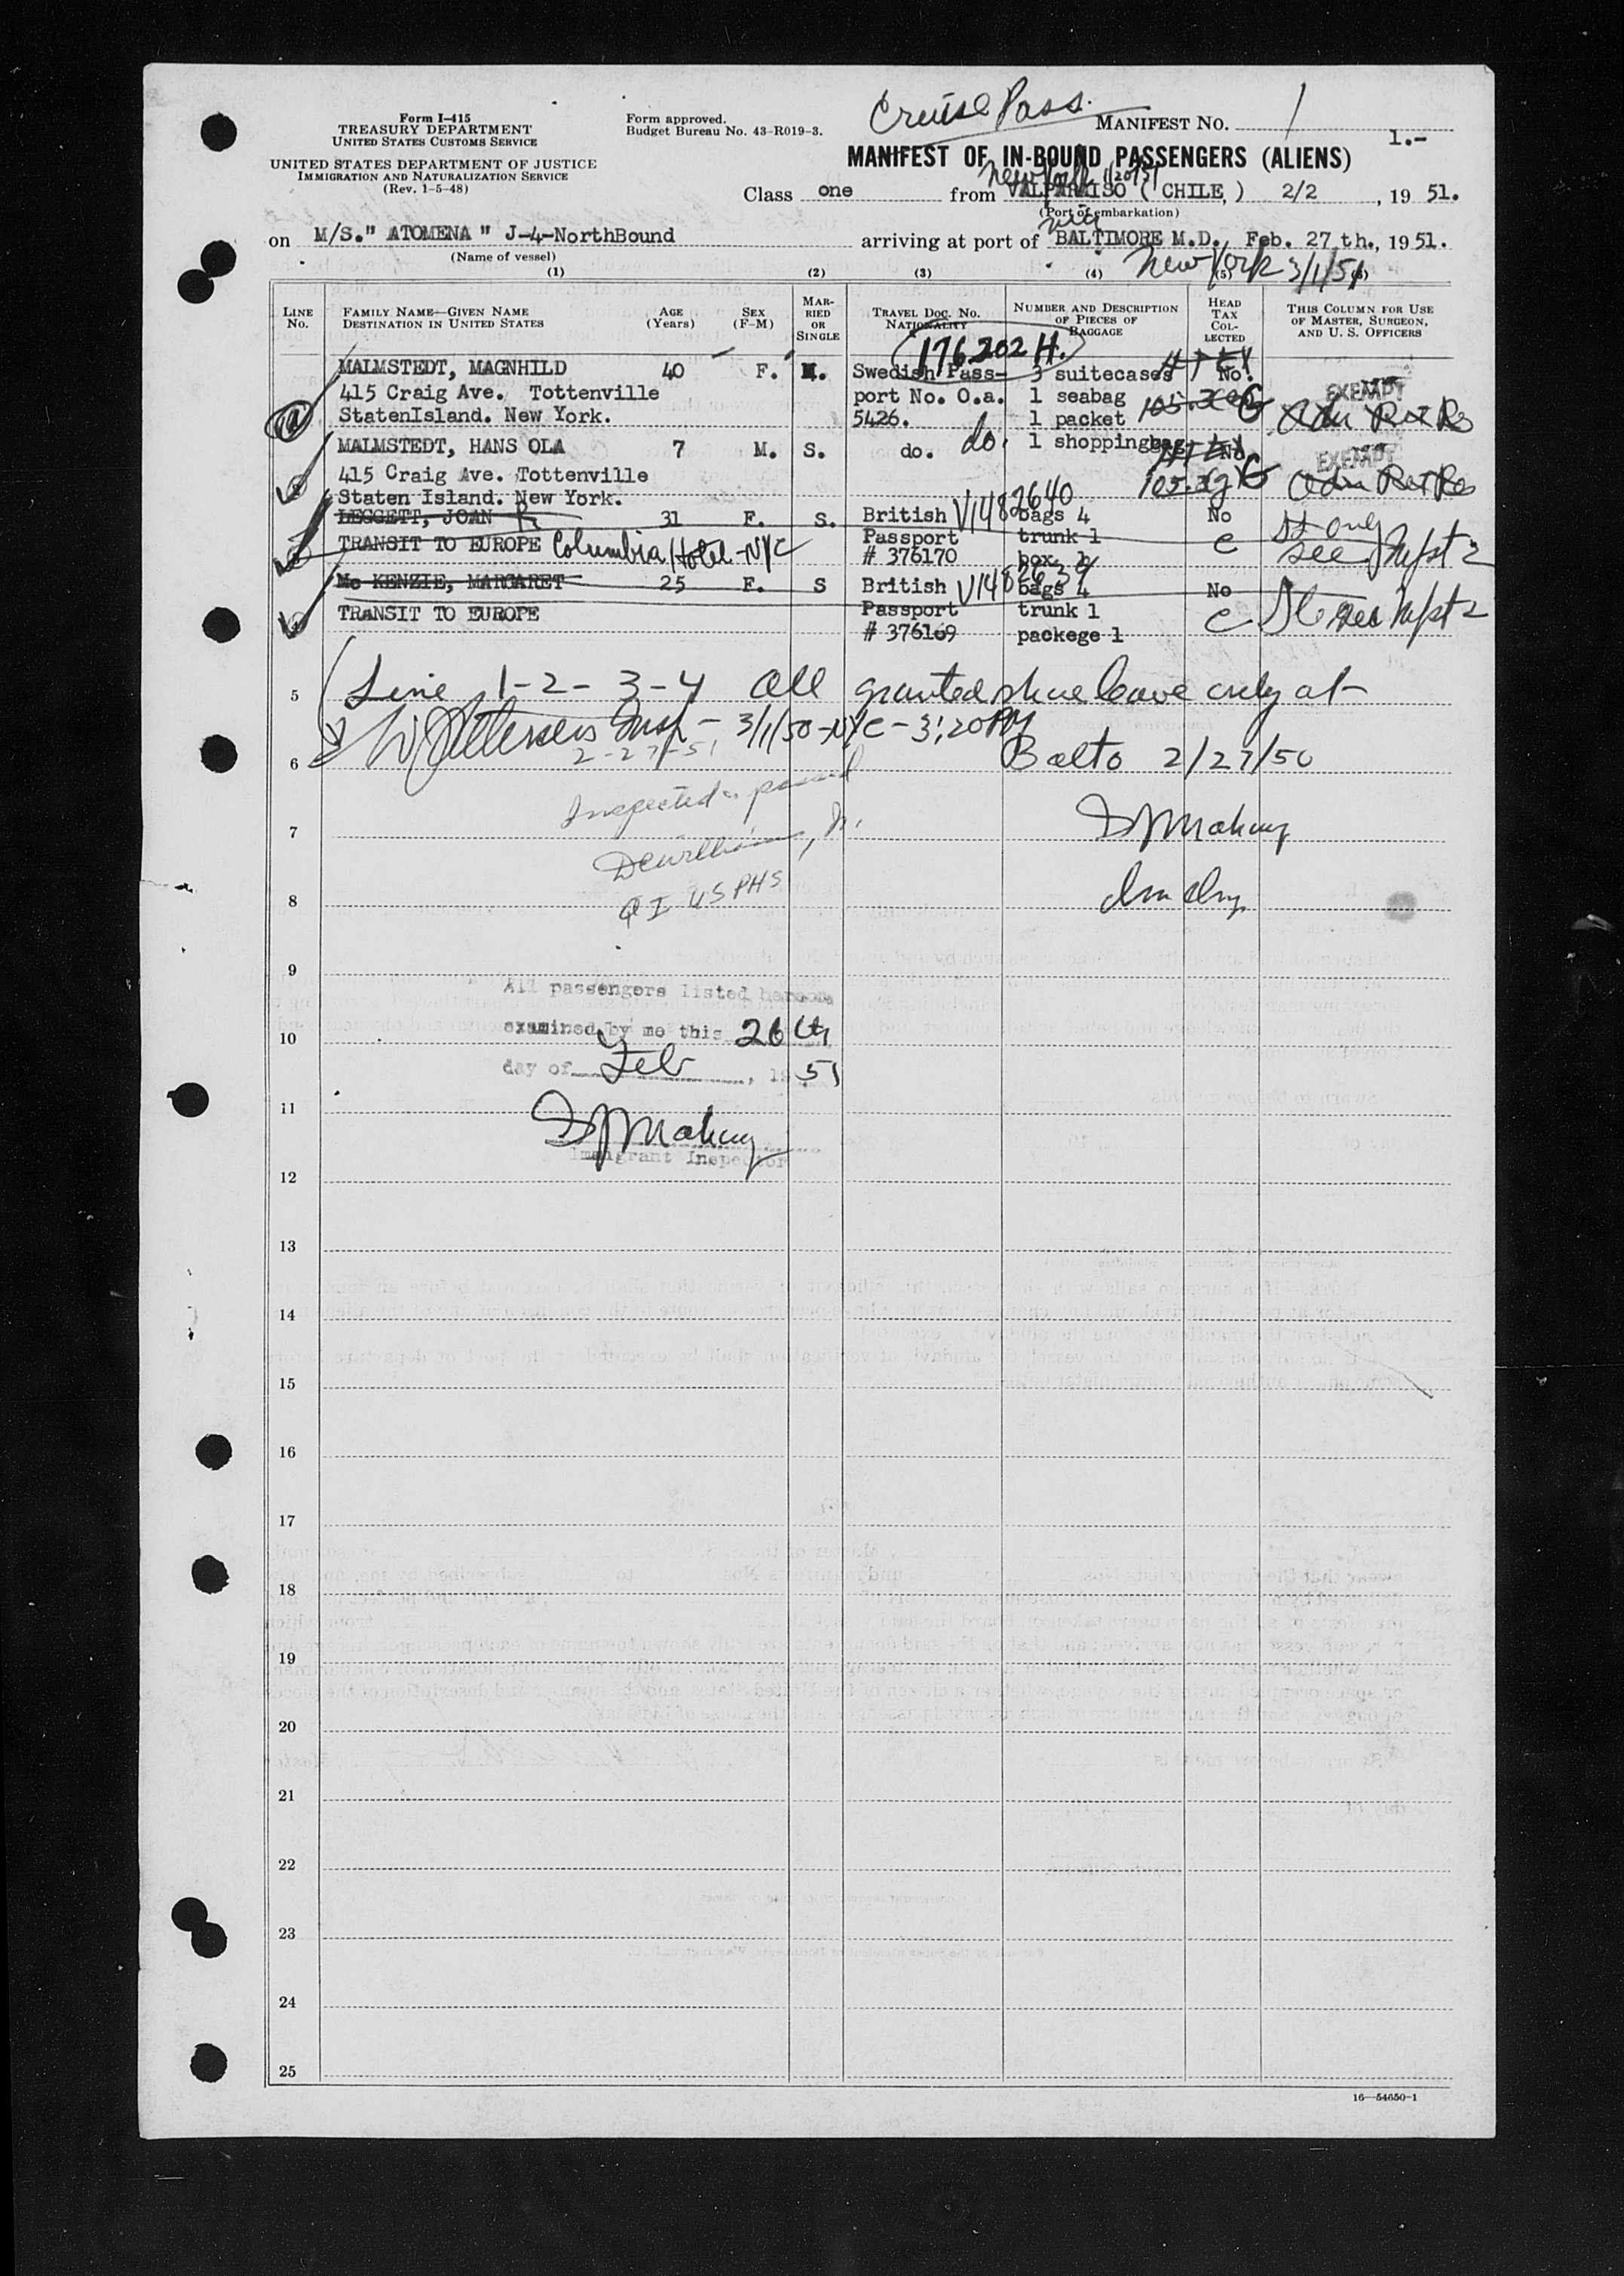 Cruise Pass.
Form I-415
TREASURY DEPARTMENT
UNITED STATES CUSTOMS SERVICE
UNITED STATES DEPARTMENT OF JUSTICE
IMMIGRATION AND NATURALIZATION SERVICE
(Rev. 1-5-48)
Form approved.
Budget Bureau No. 43-R019-3.
MANIFEST NO. 1
1.-
MANIFEST OF IN-BOUND PASSENGERS (ALIENS)
New York 1/20/51
Class one from VALPARAISO ( CHILE, ) 2/2 , 19 51.
(Port of embarkation)
on M/S." ATOMENA " J-4-NorthBound arriving at port of BALTIMORE M.D., Feb. 27 th., 19 51.
(Name of vessel)
New York 3/1/51
(1) (2) (3) (4) (5) (6)
LINE No. FAMILY NAME—GIVEN NAME DESTINATION IN UNITED STATES AGE (Years) SEX (F-M) MARRIED OR SINGLE TRAVEL DOC. NO. NATIONALITY NUMBER AND DESCRIPTION OF PIECES OF BAGGAGE HEAD TAX COLLECTED THIS COLUMN FOR USE OF MASTER, SURGEON, AND U. S. OFFICERS
176202 H.
MALMSTEDT, MAGNHILD 40 F. M. Swedish Pass- 3 suitecases No.
415 Craig Ave. Tottenville port No. O.a. 1 seabag EXEMPT
StatenIsland. New York. 5426. 1 packet
MALMSTEDT, HANS OLA 7 M. S. do. do. 1 shoppingbag No.
415 Craig Ave. Tottenville EXEMPT
Staten Island. New York.
LEGGETT, JOAN R. 31 F. S. British V1482640 bags 4 No
TRANSIT TO EUROPE Columbia Hotel-NYC Passport trunk 1 C see
# 376170 box
Mc KENZIE, MARGARET 25 F. S British bags 4 No
TRANSIT TO EUROPE Passport trunk 1 C see
# 376169 packege 1
5 Line 1-2-3-4 All granted shore leave only at
Insp- 3/1/50-NYC-3:20PM
6 2-27-51 Balto 2/27/50
Inspected & passed
7
8 QI USPHS
9
All passengers listed hereon
10 examined by me this 26th
day of Feb, 1951
11
Immigrant Inspector
12
13
14
15
16
17
18
19
20
21
22
23
24
25
16—54650-1